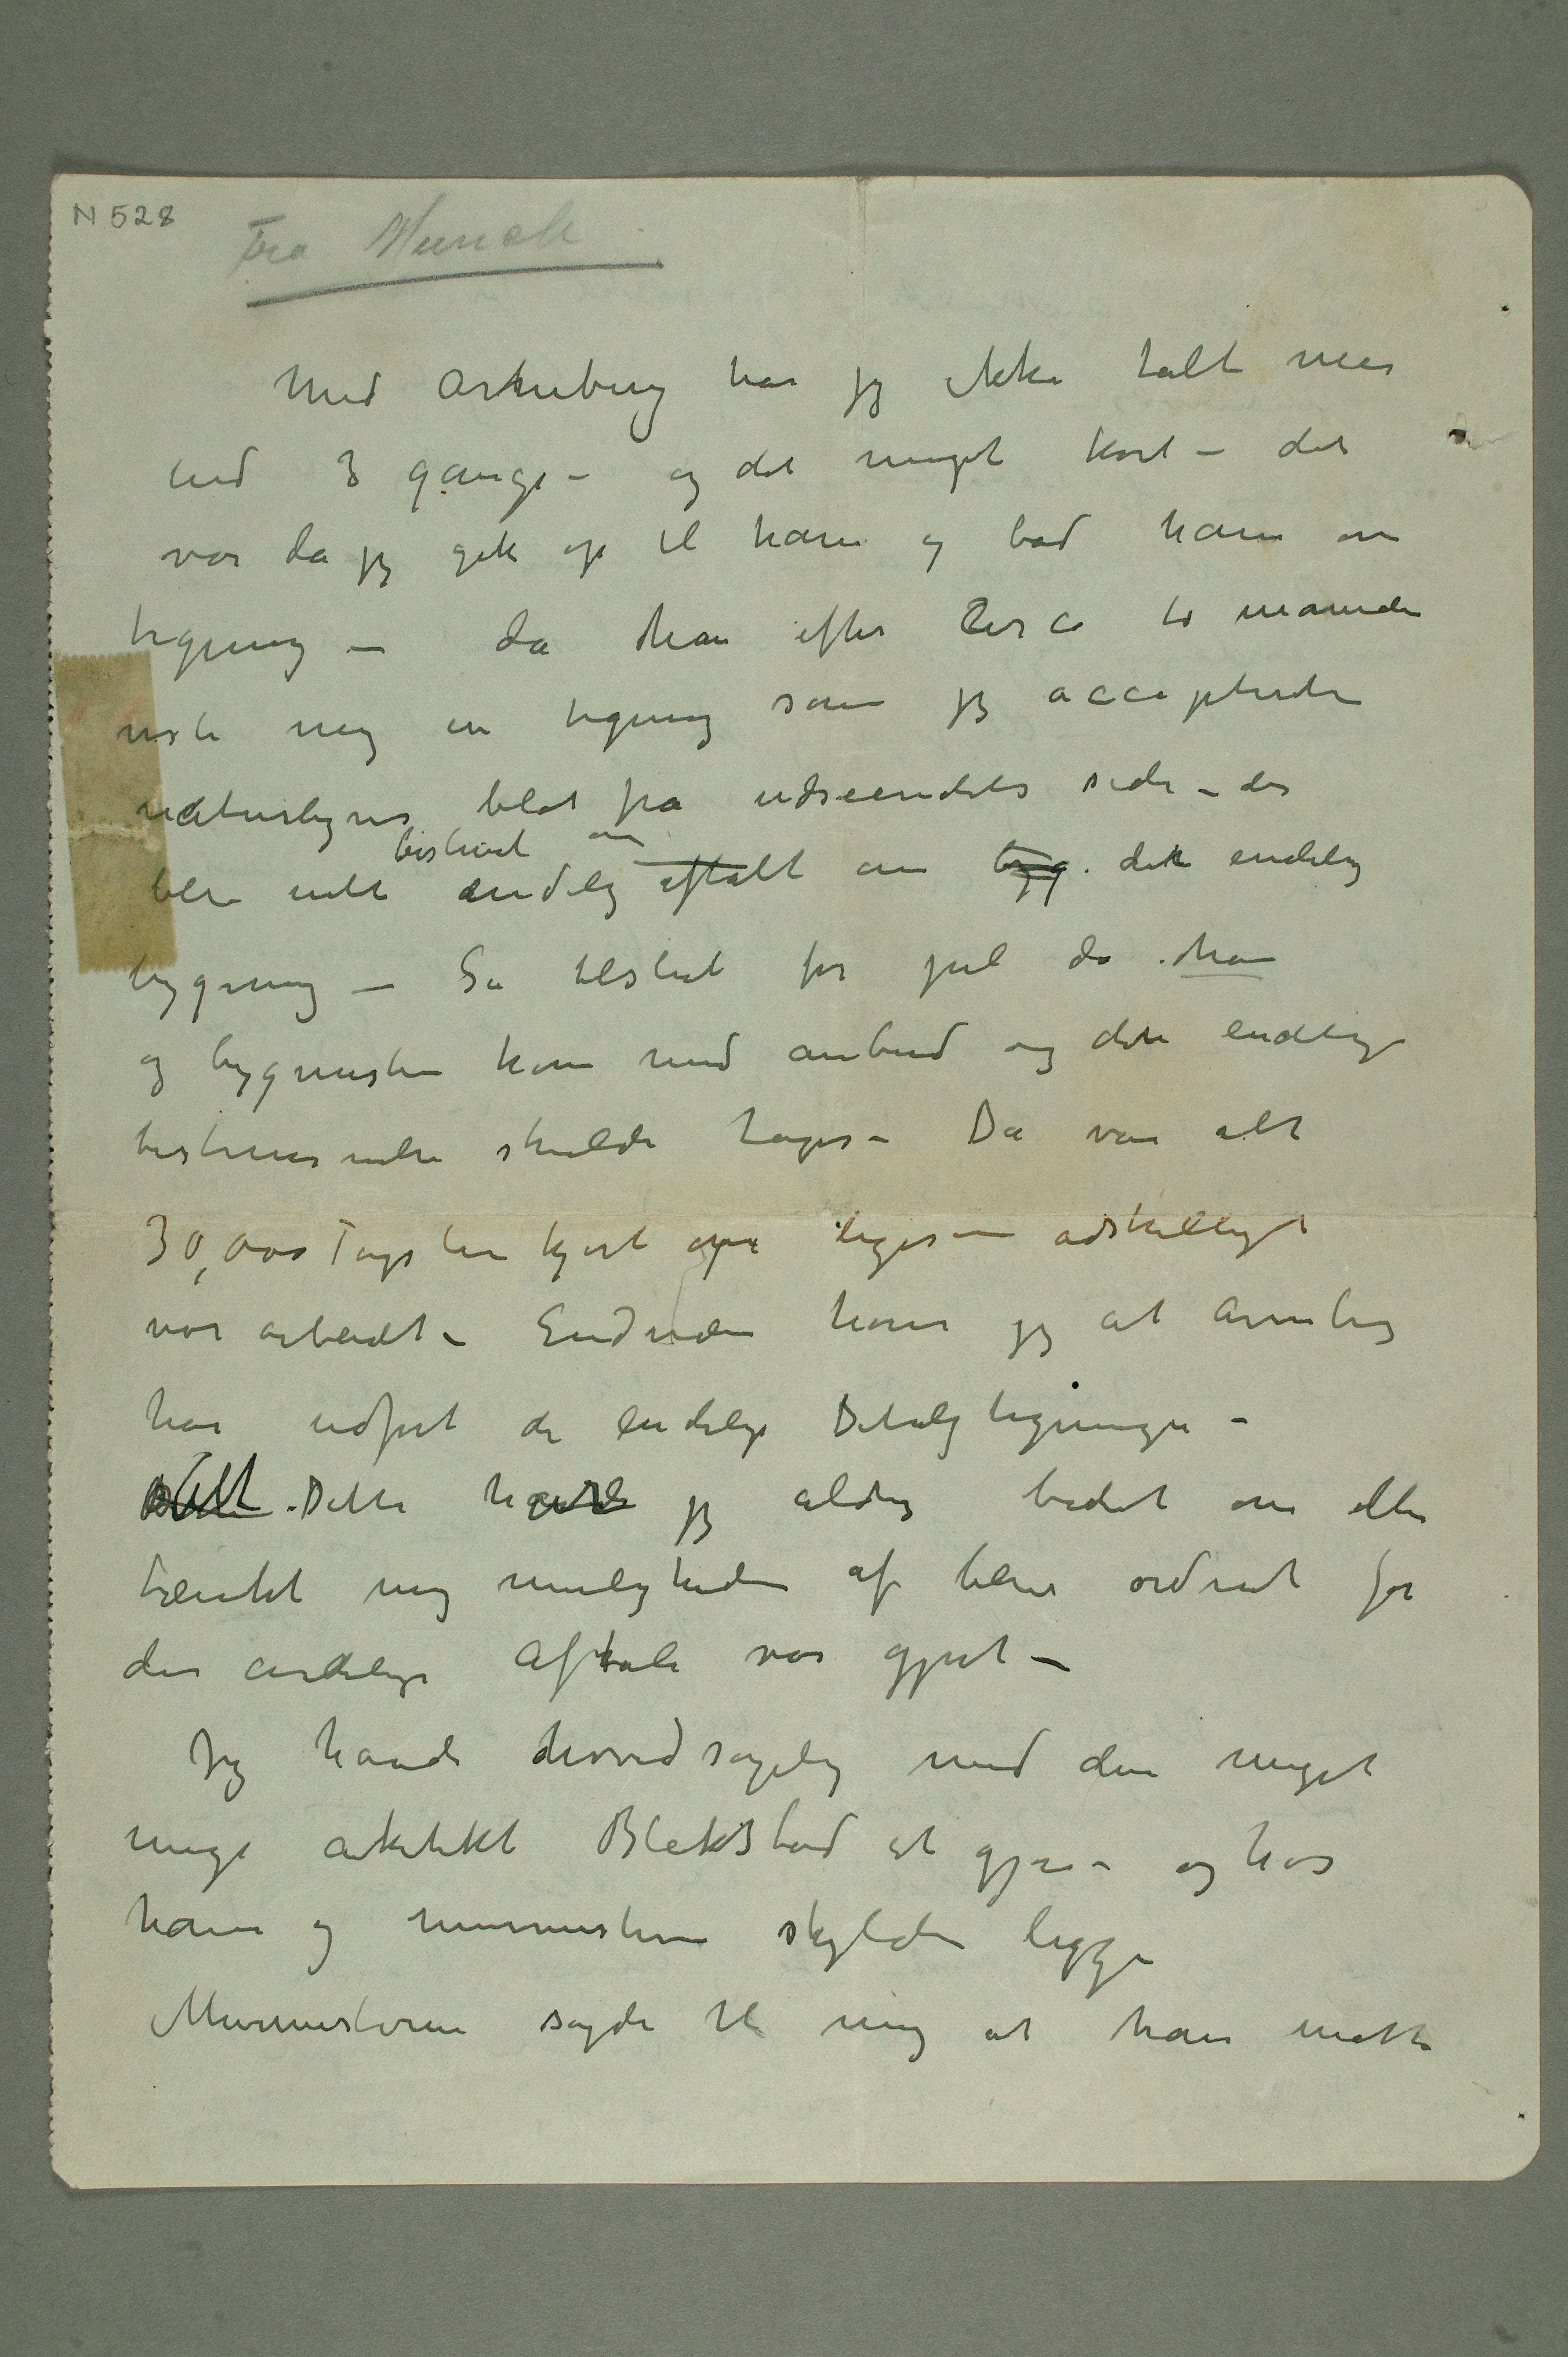 N 528
Fra Munch
Med Arneberg har jeg ikke talt mer
end 3 gange – og det meget kort – det
var da jeg gik op til ham og bad ham om
tegning – da han efter circa to maaneder
viste mig en tegning som jeg accepterte
naturligvis blot fra udseendets side – der
bestemt om
blev intet endelig aftalt om byg. dette endelig
bygning – Så tilslut før jul da han
og bygmesteren kom med anbud og den endelige
bestemmelse skulde tages – Da var alt
30,000 Tagsten kjørt op ligesom adskilligt
var arbeidet – Endvidere hører jeg at Arneberg
har udført de endelige Detalj tegninger –
Alt Dette havde jeg aldrig bedet om eller
tænkt mig muligheden af blev ordnet før
den endelige Aftale var gjort –
Jeg havde hovedsagelig med den meget
unge arkitekt Blakstad at gjøre – og hos
ham og murmesteren skylden ligge
Murmesteren sagde til mig at han måtte